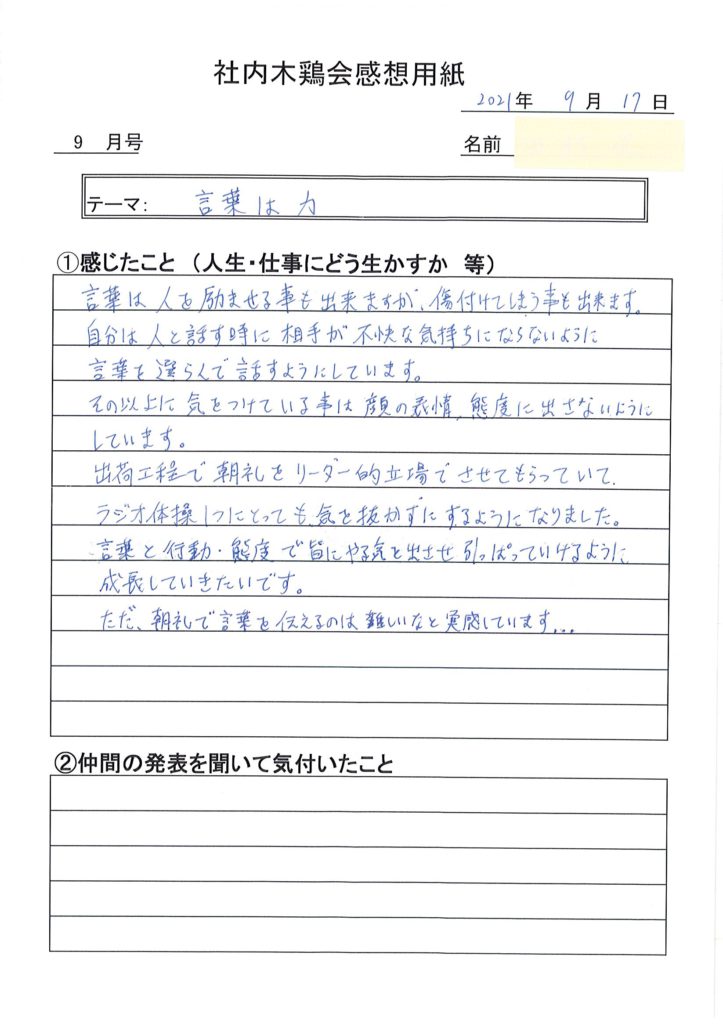 社内木鶏会感想用紙
2021年 9月 17日
9 月号
名前
テーマ: 言葉は力
①感じたこと (人生・仕事にどう生かすか 等)
言葉は人を励ませる事も出来ますが、傷付けてしまう事も出来ます。
自分は人と話す時に相手が不快な気持ちにならないように
言葉を選らんで話すようにしています。
その以上に気をつけている事は顔の表情、態度に出さないように
しています。
出荷工程で朝礼をリーダー的立場でさせてもらっていて、
ラジオ体操1つにとっても、気を抜かずにするようになりました。
言葉と行動・態度で皆にやる気を出させ引っぱっていけるように
成長していきたいです。
ただ、朝礼で言葉を伝えるのは難しいなと実感しています...
②仲間の発表を聞いて気付いたこと